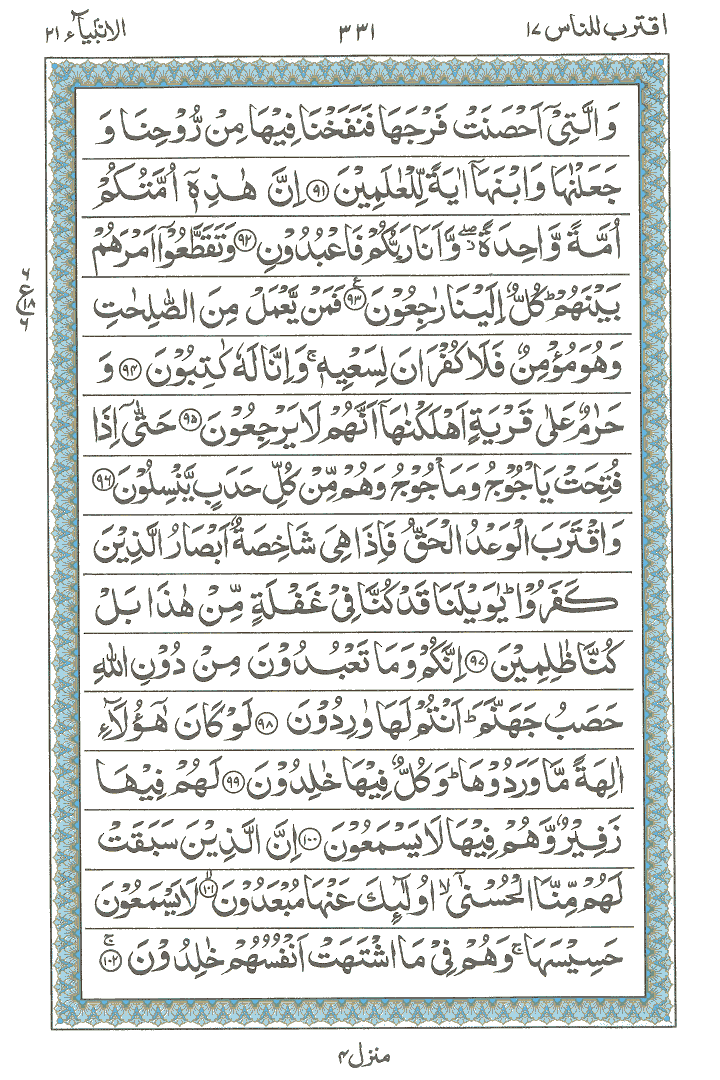 اقترب للناس ۱۷
۳۳۱
الانبیآء ۲۱
وَالَّتِیْۤ اَحْصَنَتْ فَرْجَهَا فَنَفَخْنَا فِیْهَا مِنْ رُّوْحِنَا وَ
جَعَلْنٰهَا وَابْنَهَاۤ اٰیَةً لِّلْعٰلَمِیْنَ ﴿۹۱﴾ اِنَّ هٰذِهٖۤ اُمَّتُكُمْ
اُمَّةً وَّاحِدَةً ۖ٘ وَّاَنَا رَبُّكُمْ فَاعْبُدُوْنِ ﴿۹۲﴾ وَتَقَطَّعُوْۤا اَمْرَهُمْ
بَیْنَهُمْ ؕ كُلٌّ اِلَیْنَا رٰجِعُوْنَ ﴿۹۳﴾ ع فَمَنْ یَّعْمَلْ مِنَ الصّٰلِحٰتِ
وَهُوَ مُؤْمِنٌ فَلَا كُفْرَانَ لِسَعْیِهٖ ۚ وَاِنَّا لَهٗ كٰتِبُوْنَ ﴿۹۴﴾ وَ
حَرٰمٌ عَلٰی قَرْیَةٍ اَهْلَكْنٰهَاۤ اَنَّهُمْ لَا یَرْجِعُوْنَ ﴿۹۵﴾ حَتّٰۤی اِذَا
فُتِحَتْ یَاْجُوْجُ وَمَاْجُوْجُ وَهُمْ مِّنْ كُلِّ حَدَبٍ یَّنْسِلُوْنَ ﴿۹۶﴾
وَاقْتَرَبَ الْوَعْدُ الْحَقُّ فَاِذَا هِیَ شَاخِصَةٌ اَبْصَارُ الَّذِیْنَ
كَفَرُوْا ؕ یٰوَیْلَنَا قَدْ كُنَّا فِیْ غَفْلَةٍ مِّنْ هٰذَا بَلْ
كُنَّا ظٰلِمِیْنَ ﴿۹۷﴾ اِنَّكُمْ وَمَا تَعْبُدُوْنَ مِنْ دُوْنِ اللّٰهِ
حَصَبُ جَهَنَّمَ ؕ اَنْتُمْ لَهَا وٰرِدُوْنَ ﴿۹۸﴾ لَوْ كَانَ هٰۤؤُلَآءِ
اٰلِهَةً مَّا وَرَدُوْهَا ؕ وَكُلٌّ فِیْهَا خٰلِدُوْنَ ﴿۹۹﴾ لَهُمْ فِیْهَا
زَفِیْرٌ وَّهُمْ فِیْهَا لَا یَسْمَعُوْنَ ﴿۱۰۰﴾ اِنَّ الَّذِیْنَ سَبَقَتْ
لَهُمْ مِّنَّا الْحُسْنٰۤی ۙ اُولٰٓىِٕكَ عَنْهَا مُبْعَدُوْنَ ﴿۱۰۱﴾ۙ لَا یَسْمَعُوْنَ
حَسِیْسَهَا ۚ وَهُمْ فِیْ مَا اشْتَهَتْ اَنْفُسُهُمْ خٰلِدُوْنَ ﴿۱۰۲﴾ۚ
۶
ع ۱۸
۶
منزل ۴